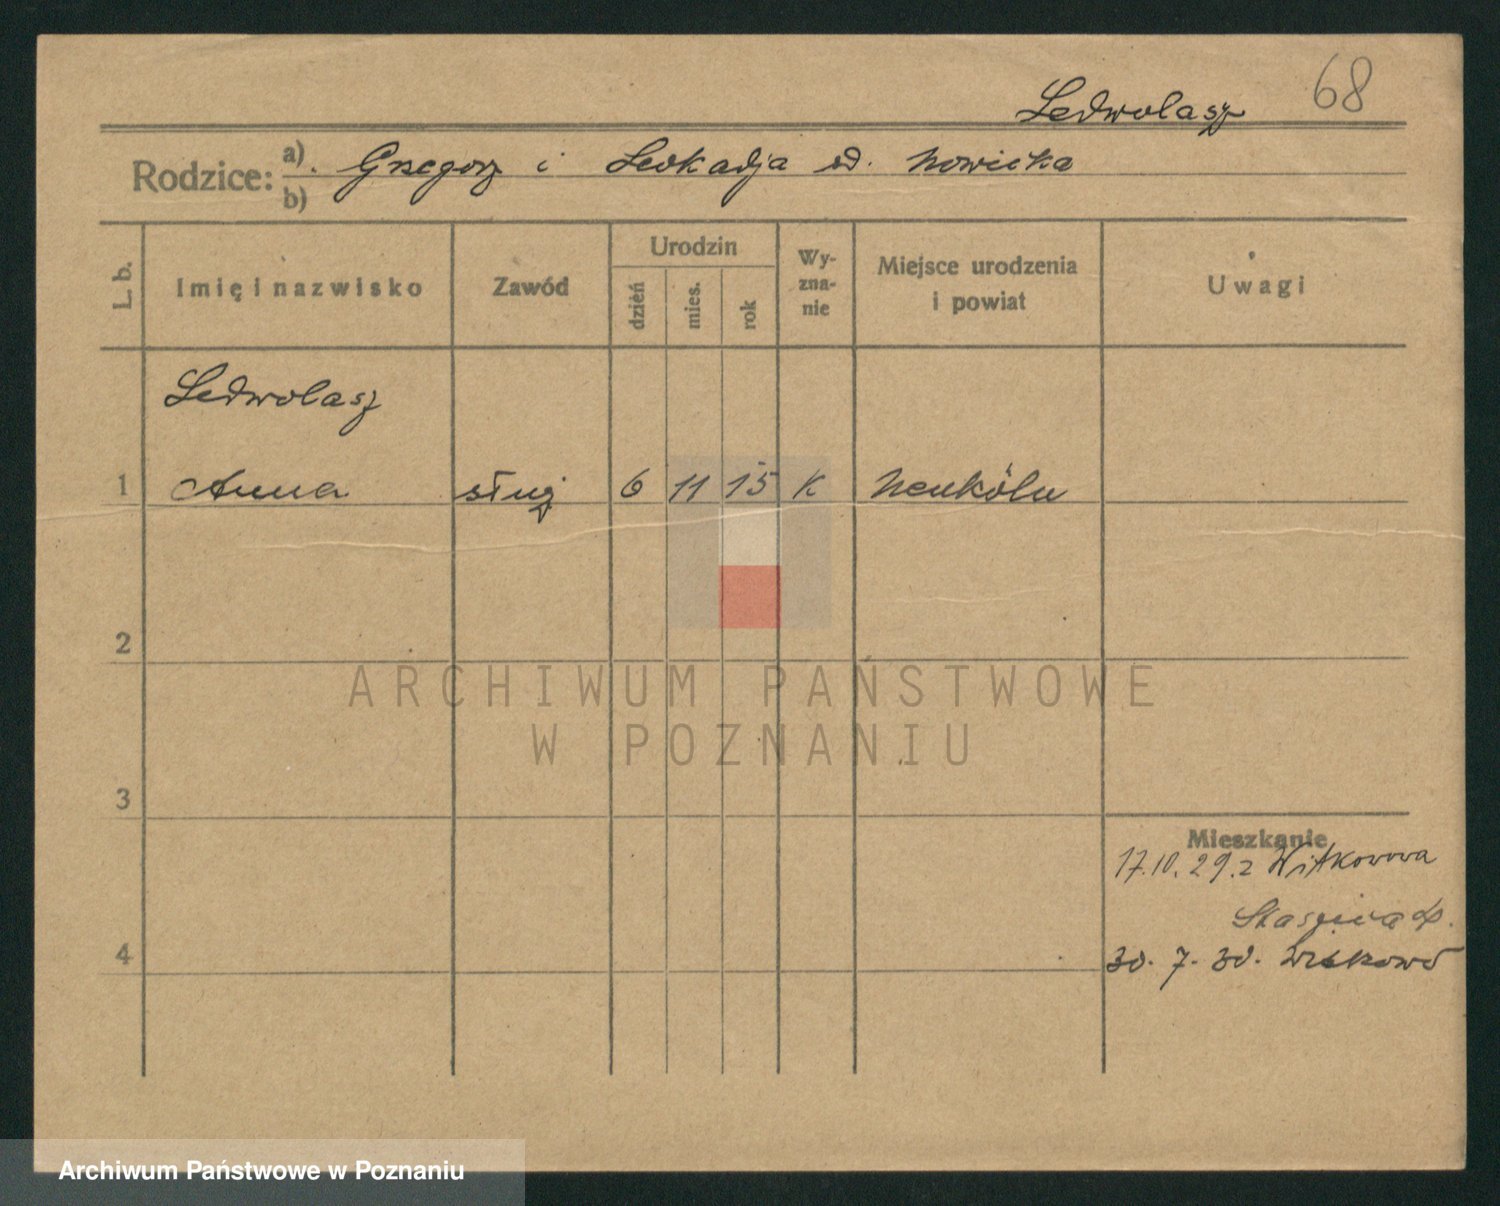 Ledwolasz 68
Rodzice: a) Grzegorz i Leokadja od. Nowicka
b)
L. b.
Imię i nazwisko
Zawód
Urodzin
dzień
mies.
rok
Wy-
zna-
nie
Miejsce urodzenia
i powiat
Uwagi
Ledwolasz
1 Anna służ 6 11 15 K Neuköln
2
3
4
Mieszkanie
17.10.29. z Witkowowa
Staszica
30. 7. 30. Witkowo
ARCHIWUM PAŃSTWOWE
W POZNANIU
Archiwum Państwowe w Poznaniu